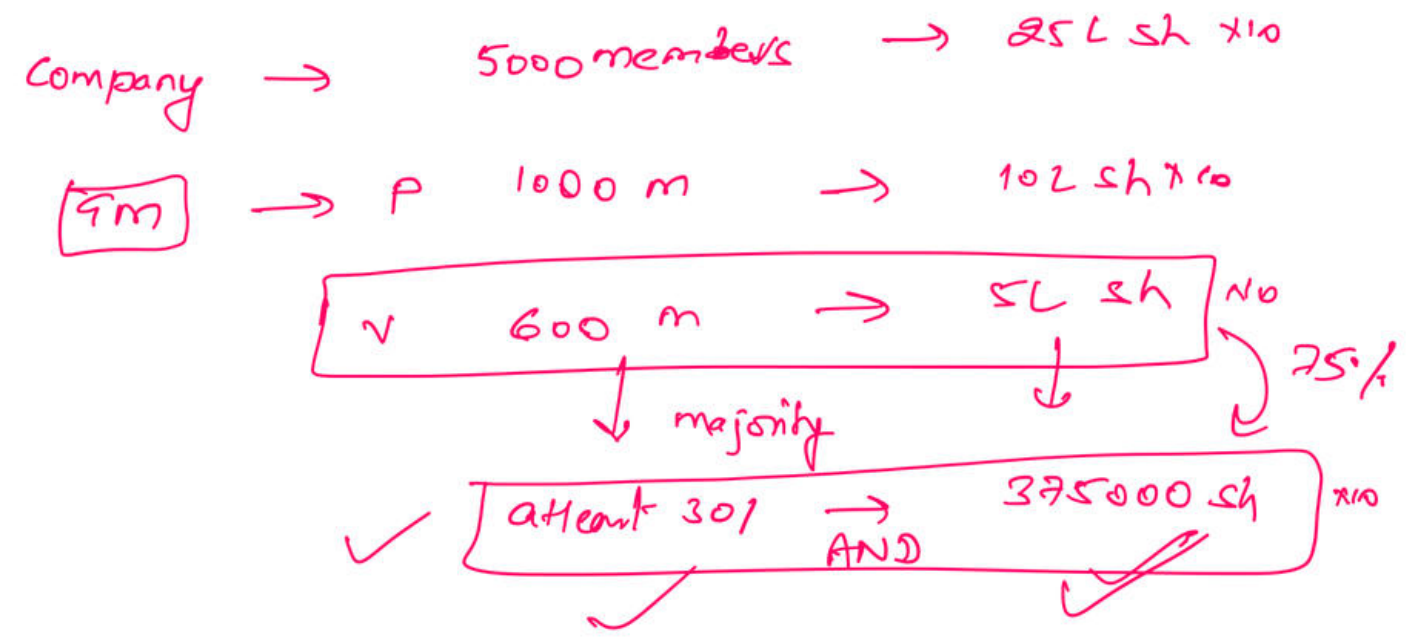 Company → 5000 members → 25L sh ×10
GM → P 1000 m → 10L sh ×10
V 600 m → 5L sh NO
75%
majority
atleast 301 → 375000 sh ×10
AND